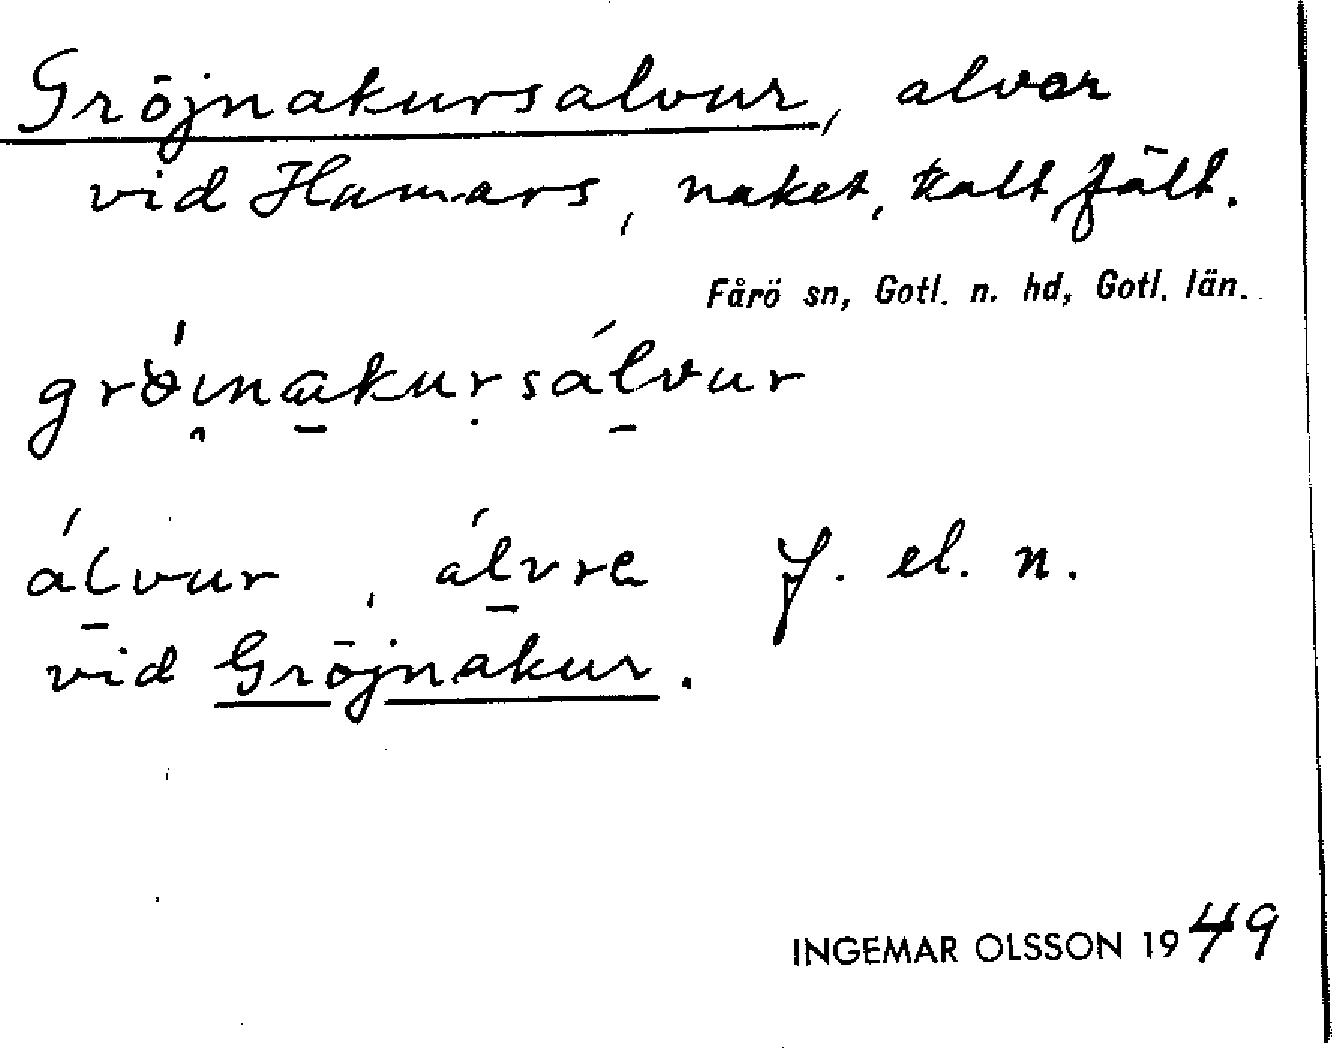 Gröjnakursalvur, alvar
vid Hamars, naket, kalt fält.
Fårö sn, Gotl. n. hd, Gotl. län.
álvur, álvre f. el. n.
vid Gröjnakur.
INGEMAR OLSSON 1949